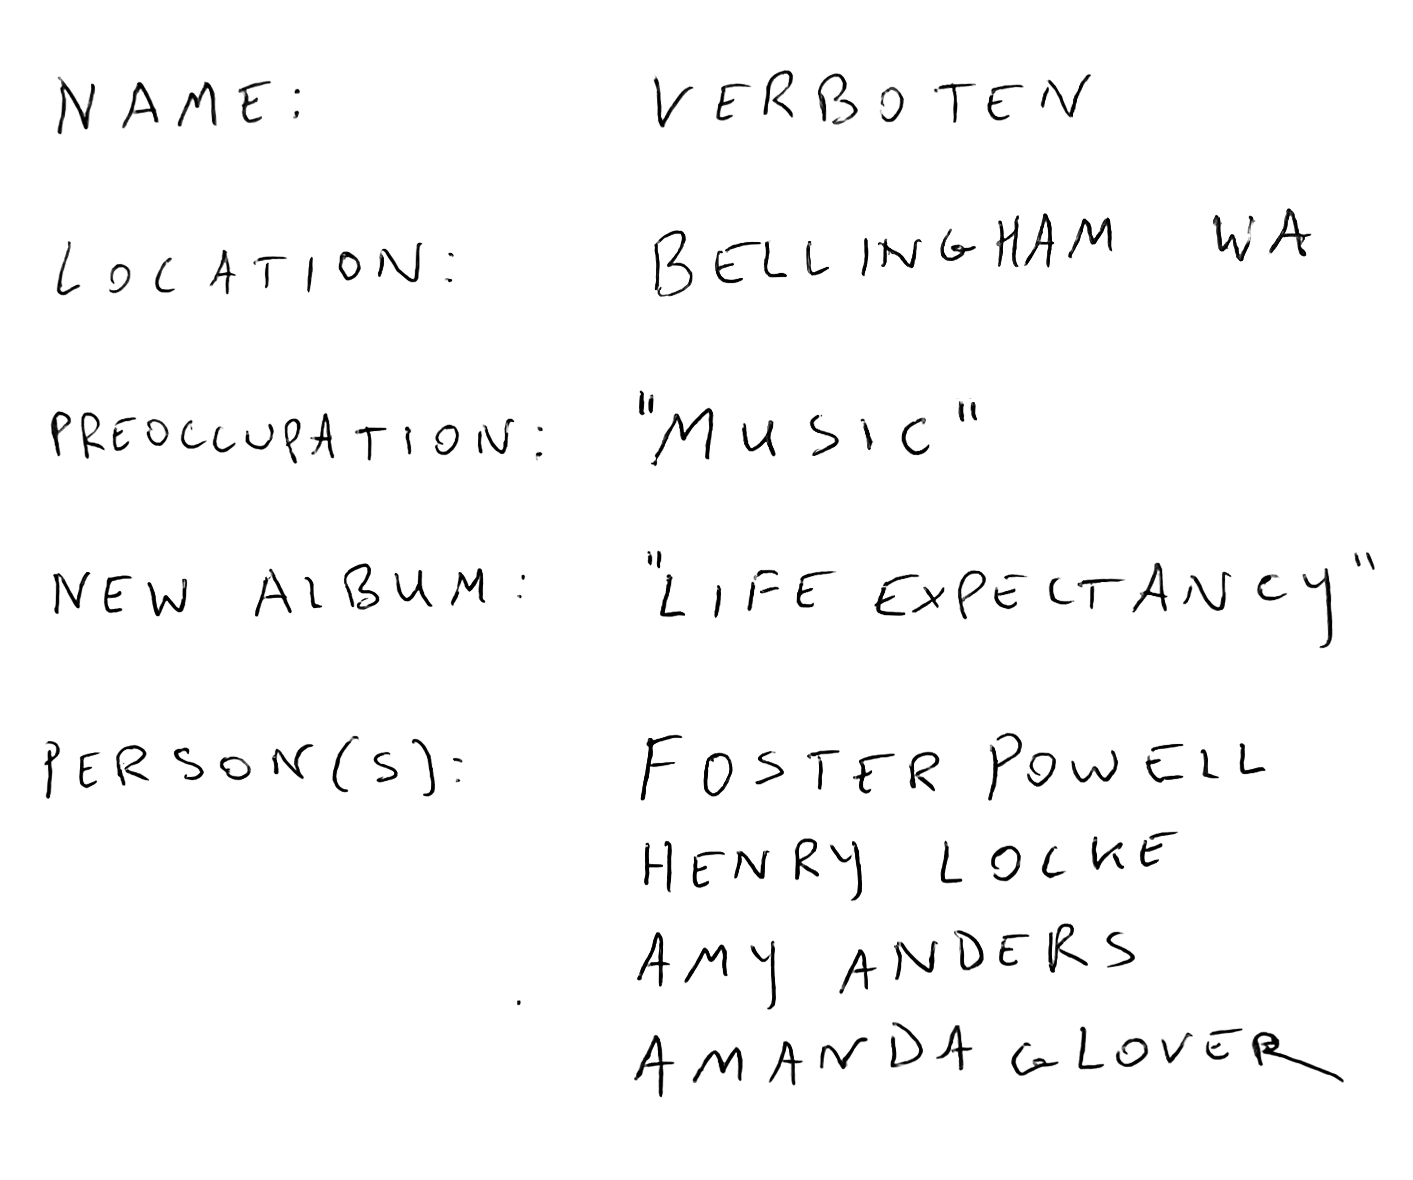 NAME: VERBOTEN
LOCATION: BELLINGHAM WA
PREOCCUPATION: "MUSIC"
NEW ALBUM: "LIFE EXPECTANCY"
PERSON(S): FOSTER POWELL
HENRY LOCKE
AMY ANDERS
AMANDA GLOVER